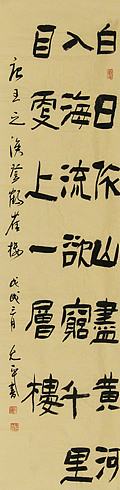 白日依山盡黃河
入海流欲窮千里
目更上一層樓
唐王之渙登鸛雀樓 戊戌三月